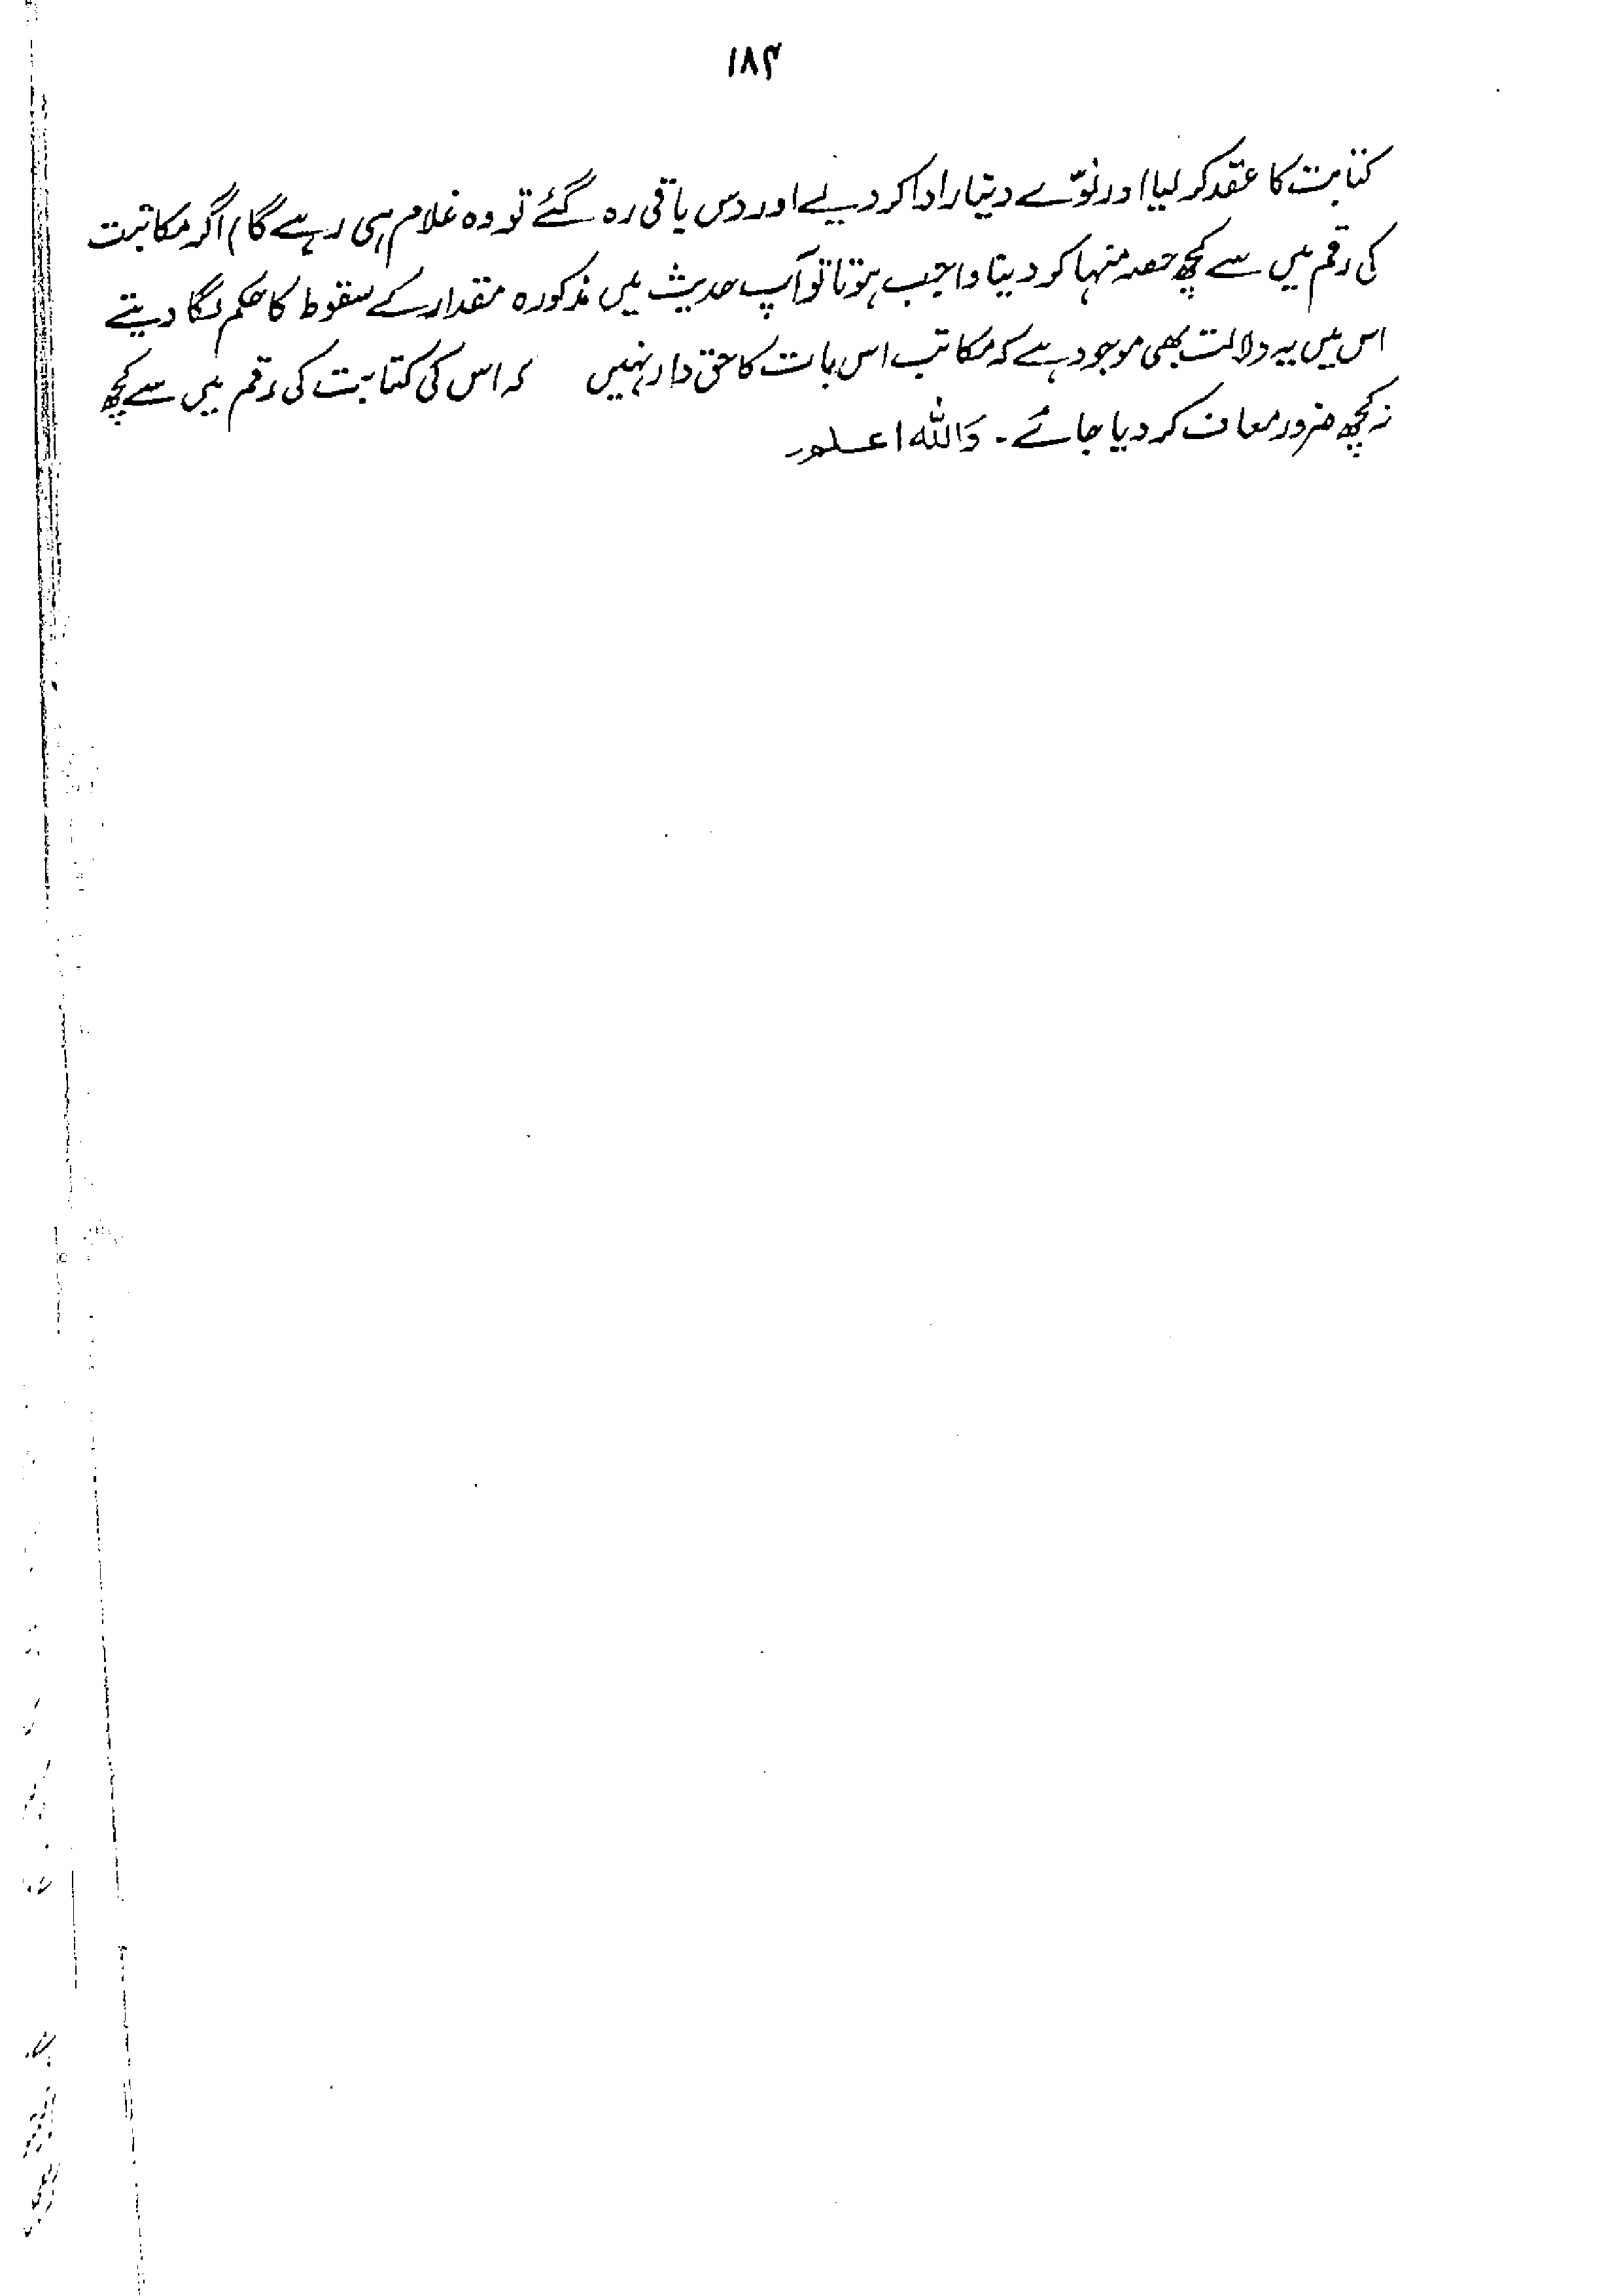 ۱۸۴
کتابت کا عقد کر لیا اور نوّے دینار ادا کر دیے اور دس باقی رہ گئے تو وہ غلام ہی رہے گا) اگر مکاتبت
کی رقم میں سے کچھ حصہ منہا کر دینا واجب ہوتا تو آپ حدیث میں مذکورہ مقدار کے سقوط کا حکم لگا دیتے
اس میں یہ دلالت بھی موجود ہے کہ مکاتب اس بات کا حق دار نہیں کہ اس کی کتابت کی رقم میں سے کچھ
نہ کچھ ضرور معاف کر دیا جائے۔ واللہ اعلم